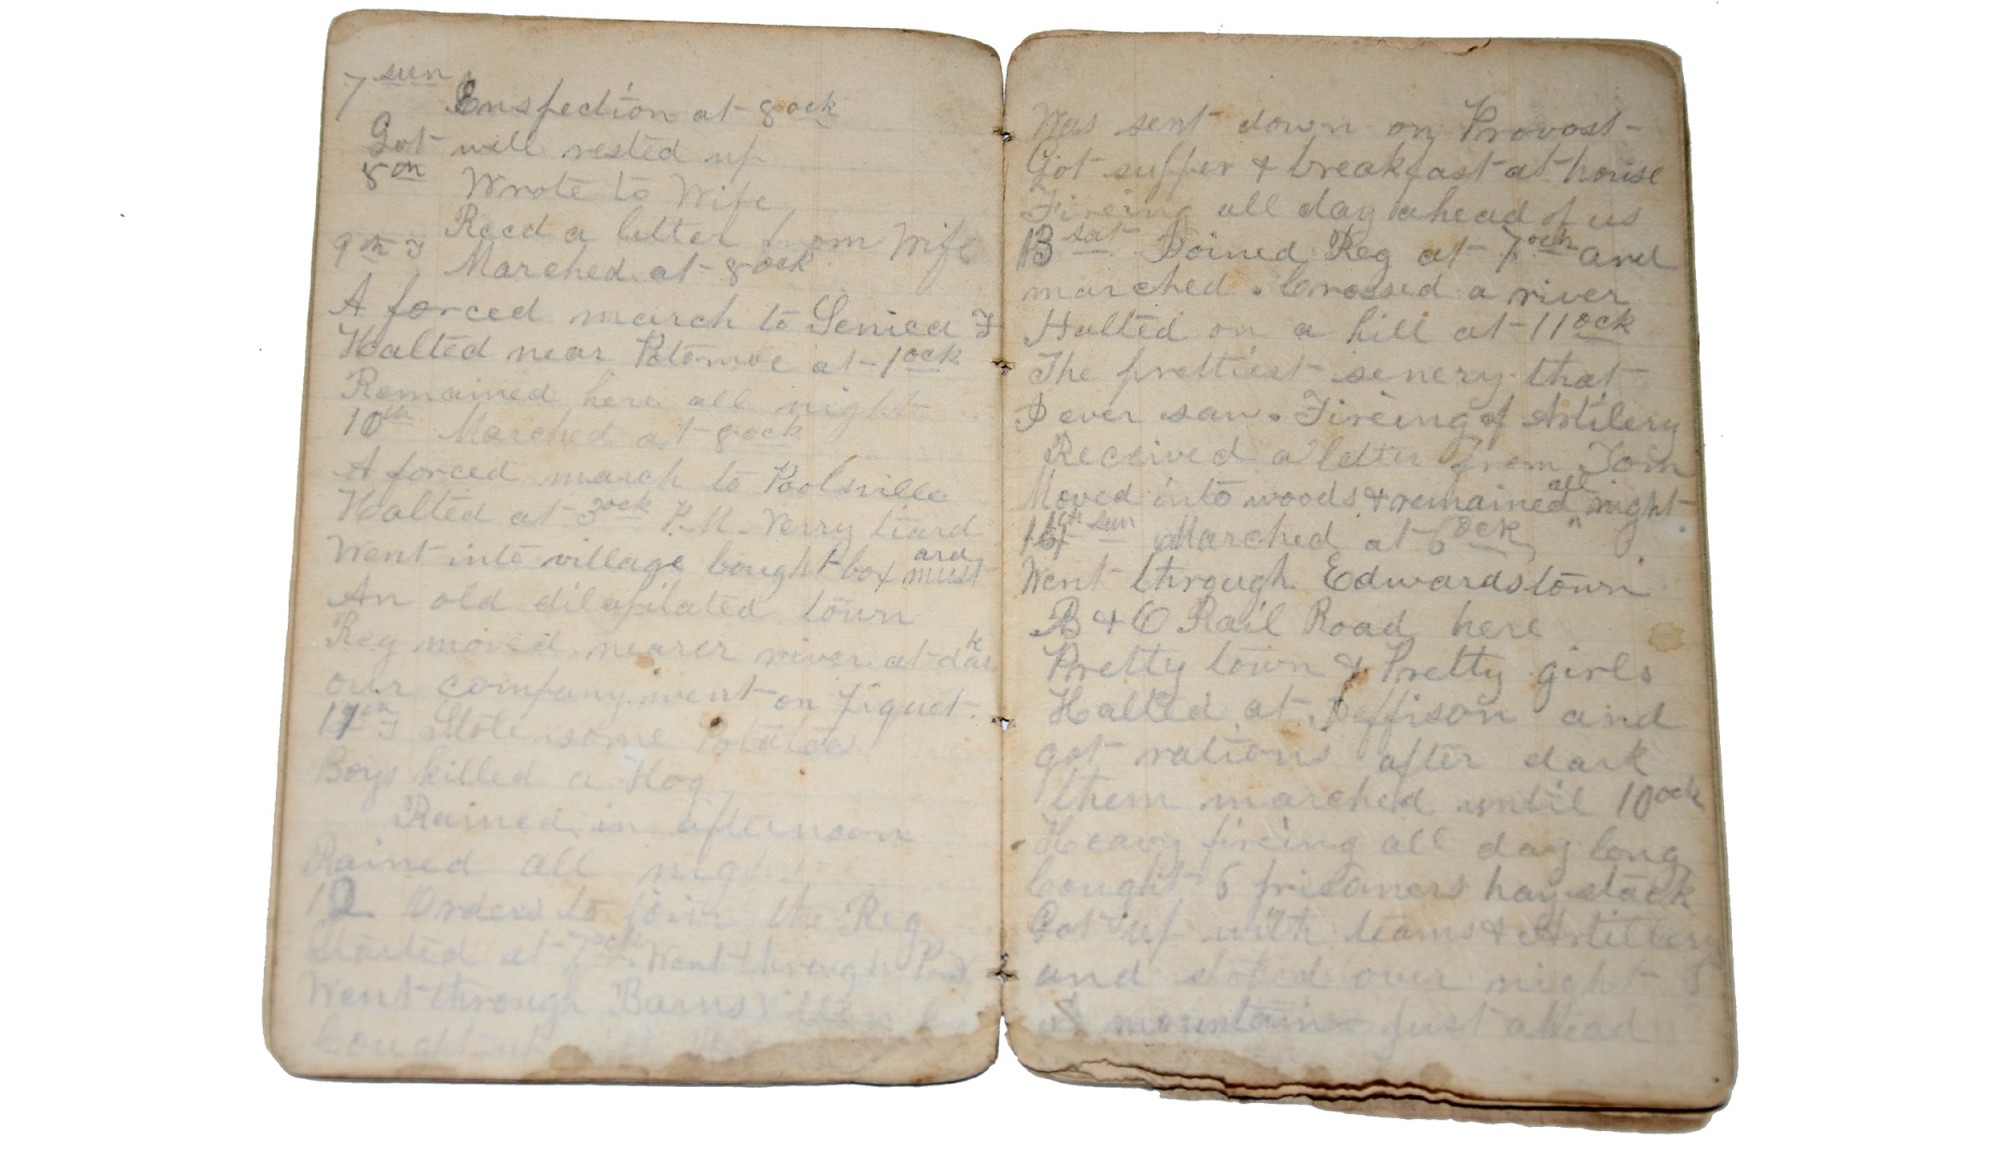 7 sun Enspection at 8 ock
Got well rested up
8 on Wrote to Wife
Recd a letter from Wife
9 Marched at 8 ock
A forced march to Senica
Halted near Potomoc at 1 ock
Remained here all night
10th Marched at 8 ock
A forced march to Poolsville
Halted at 3 ock P.M. Verry tiard
Went into village bought box mustard
An old dilapilated town
Reg moved nearer river at dark
our company went on Piquet
11 Stolen some Potatoes
Boys killed a Hog
Rained in afternoon
Rained all night
12 Orders to join the Reg
Started at 7 ock Went through
Went through Barnsville
Cought up with
Was sent down on Provost
Got supper & breakfast at house
Fireing all day ahead of us
13 sat Joined Reg at 7 ock and
marched . Crossed a river
Halted on a hill at 11 ock
The prettiest senery that
I ever saw . Fireing of Artilery
Received a letter from Tom
Moved into woods & remained all night
14 sun Marched at 6 ock
Went through Edwardstown
B & O Rail Road here
Pretty town & Pretty girls
Halted at Jeffison and
got rations after dark
them marched until 10 ock
Heavy fireing all day long
Cought 6 prisoners haystack
Got up with teams & Artillery
and stoped over night
mountains just ahead